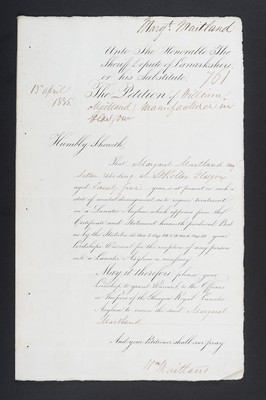 Margt. Maitland
Unto The Honorable The
Sheriff Depute of Lanarkshire,
or his Substitute,
761
15 april
1845
The Petition of William
Maitland, Manufacturer in
Glasgow
Humbly Sheweth,
That Margaret Maitland my
Sister residing in St Rollox Glasgow
aged Twenty four years is at present in such a
state of mental derangement as to require treatment
in a Lunatic Asylum which appears from the
Certificate and Statement herewith produced. But
as by the Statutes
Lordships Warrant for the reception of any person
into a Lunatic Asylum is necessary.
May it therefore please your
Lordship to grant Warrant to the Officers
or Keepers of the Glasgow Royal Lunatic
Asylum to receive the said Margaret
Maitland
And your Petitioner shall ever pray
Wm Maitland